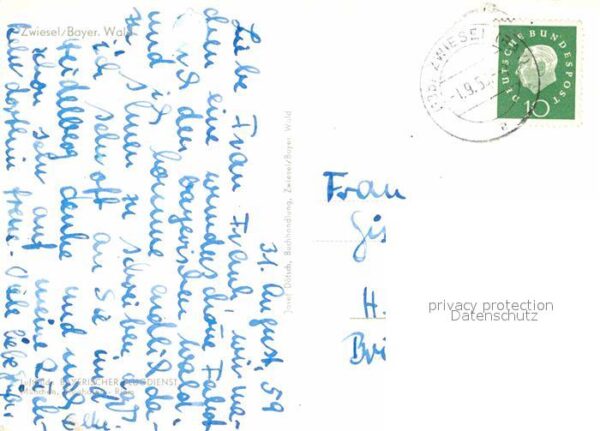 Zwiesel/Bayer. Wald
31. August, 59
Liebe Frau Frank, wir ma-
chen eine wunderschöne Fahrt
in den bayerischen Wald
und ich komme endlich da-
zu, Ihnen zu schreiben, daß
ich sehr oft an Sie und
Heidelberg denke und mich
schon sehr auf meine Rück-
kehr dorthin freue. Viele liebe Grüße
Elke
Josef Dötsch, Buchhandlung, Zwiesel/Bayer. Wald
BAYERISCHER FLUGDIENST
München,
ZWIESEL
-1.9.5
DEUTSCHE BUNDESPOST
10
Frau
Gis
H.
Bri
privacy protection
Datenschutz